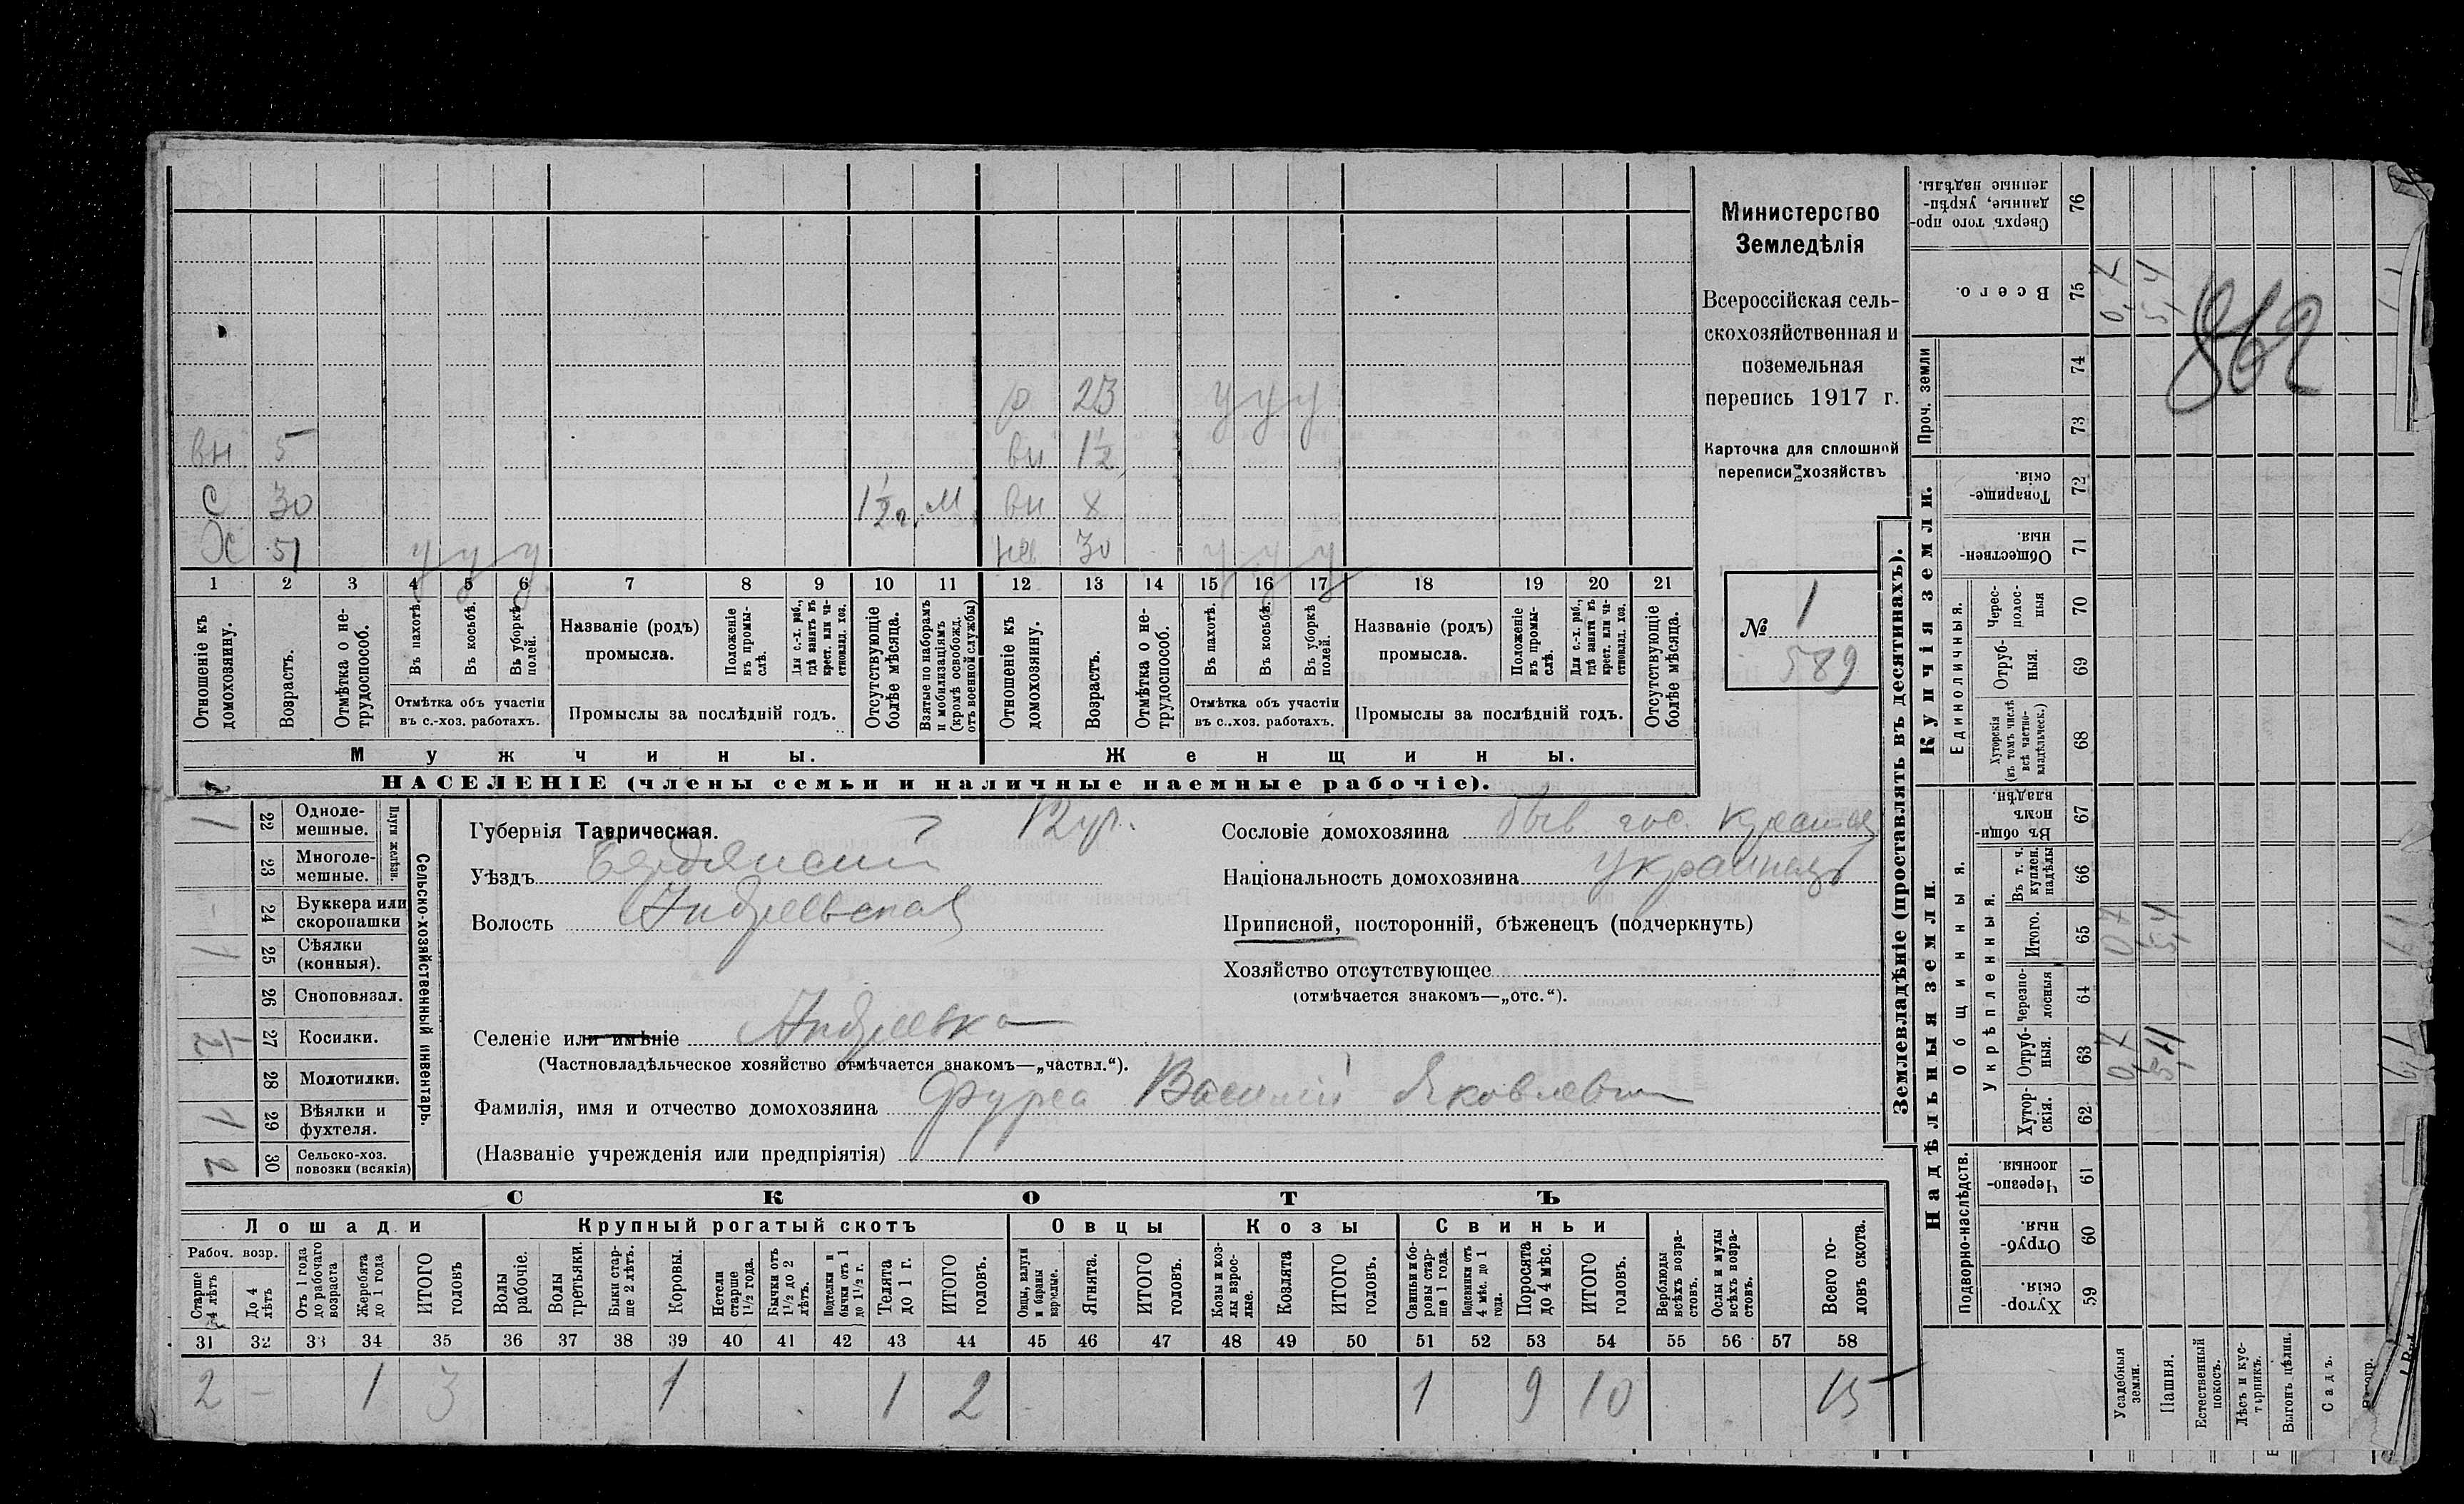 вн 5
С 30 1½ г. М
Х 51 у у у
р 23 у у у
вн 1½
вн х
не 30 у у у
1 2 3 4 5 6 7 8 9 10 11 12 13 14 15 16 17 18 19 20 21
Отношеніе къ домохозяину.
Возрастъ.
Отмѣтка о не-
трудоспособ.
Въ пахотѣ.
Въ косьбѣ.
Въ уборкѣ
полей.
Отмѣтка объ участіи
въ с.-хоз. работахъ.
Названіе (родъ)
промысла.
Положеніе
въ промы-
слѣ.
Для с.-х. раб.,
гдѣ занятъ въ
крест. или ча-
стновлад. хоз.
Промыслы за послѣдній годъ.
Отсутствующіе
болѣе мѣсяца.
Взятые по наборамъ
и мобилизаціямъ
(кромѣ освобожд.
отъ военной службы)
Отношеніе къ
домохозяину.
Возрастъ.
Отмѣтка о не-
трудоспособ.
Въ пахотѣ.
Въ косьбѣ.
Въ уборкѣ
полей.
Отмѣтка объ участіи
въ с.-хоз. работахъ.
Названіе (родъ)
промысла.
Положеніе
въ промы-
слѣ.
Для с.-х. раб.,
гдѣ занята въ
крест. или ча-
стновлад. хоз.
Промыслы за послѣдній годъ.
Отсутствующіе
болѣе мѣсяца.
Мужчины. Женщины.
НАСЕЛЕНІЕ (члены семьи и наличные наемные рабочіе).
Министерство
Земледѣлія
Всероссійская сель-
скохозяйственная и
поземельная
перепись 1917 г.
Карточка для сплошной
переписи хозяйствъ
№ 1
589
1 22 Одноле-
мешные.
23 Многоле-
мешные.
Плуги желѣзн.
- 24 Буккера или
скоропашки
1 25 Сѣялки
(конныя).
26 Сноповязал.
½ 27 Косилки.
28 Молотилки.
1 29 Вѣялки и
фухтеля.
2 30 Сельско-хоз.
повозки (всякія)
Сельско-хозяйственный инвентарь.
Губернія Таврическая.
Уѣздъ Бердянскій
Волость Андреевская
Селеніе или имѣніе Андреевка
(Частновладѣльческое хозяйство отмѣчается знакомъ—„частвл.“).
Фамилія, имя и отчество домохозяина Фурса Василій Яковлевич
(Названіе учрежденія или предпріятія)
Сословіе домохозяина быв. гос. крестья
Національность домохозяина украинецъ
Приписной, посторонній, бѣженецъ (подчеркнуть)
Хозяйство отсутствующее
(отмѣчается знакомъ—„отс.“).
СКОТЪ
Лошади Крупный рогатый скотъ Овцы Козы Свиньи
Рабоч. возр.
Старше
4 лѣтъ
До 4
лѣтъ
Отъ 1 года
до рабочаго
возраста
Жеребята
до 1 года
ИТОГО
головъ
Волы
рабочіе.
Волы
третьяки.
Быки стар-
ше 2 лѣтъ.
Коровы.
Нетели
старше
1½ года.
Бычки отъ
1½ до 2
лѣтъ.
Подтелки и
бычки отъ 1
до 1½ г.
Телята
до 1 г.
ИТОГО
головъ.
Овцы, валухи
и бараны
взрослые.
Ягнята.
ИТОГО
головъ.
Козы и коз-
лы взрос-
лые.
Козлята
ИТОГО
головъ.
Свиньи и бо-
ровы стар-
ше 1 года.
Подсвинки отъ
4 мѣс. до 1
года.
Поросята
до 4 мѣс.
ИТОГО
головъ.
Верблюды
всѣхъ возра-
стовъ.
Ослы и мулы
всѣхъ возра-
стовъ.
Всего го-
ловъ скота.
31 32 33 34 35 36 37 38 39 40 41 42 43 44 45 46 47 48 49 50 51 52 53 54 55 56 57 58
2 - 1 3 1 1 2 1 9 10 15
Землевладѣніе (проставлять въ десятинахъ).
Надѣльныя земли. Купчія земли. Проч. земли
Подворно-наслѣдств.
Общинныя.
Укрѣпленныя.
Единоличныя.
Хутор-
скія. 59
Отруб-
ныя. 60
Черезпо-
лосныя. 61
Хутор-
скія. 62
Отруб-
ныя. 63 0,7 5,4
Черезпо-
лосныя 64
Итого. 65 0,7 5,4
Въ т. ч.
куплен.
надѣлы 66
Въ общин-
номъ
владѣн. 67
Хуторскія
(въ томъ числѣ
всѣ частно-
владѣльческ.) 68
Отруб-
ныя. 69
Черес-
полос-
ныя 70
Обществен-
ныя. 71
Товарище-
скія. 72
73
74
Всего. 75 0,7 5,4
Сверхъ того про-
данные, укрѣп-
ленные надѣлы. 76
862
6,1
6,1
Усадебныя
земли.
Пашня.
Естественный
покосъ.
Лѣсъ и кус-
тарникъ.
Выгонъ цѣлин.
Садъ.